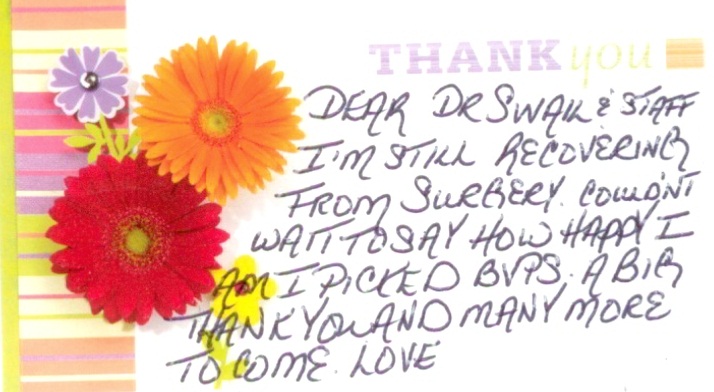 THANK you
DEAR DR SWAIL & STAFF
I'M STILL RECOVERING
FROM SURGERY. COULDN'T
WAIT TO SAY HOW HAPPY I
AM I PICKED BVPS. A BIG
THANK YOU AND MANY MORE
TO COME. LOVE